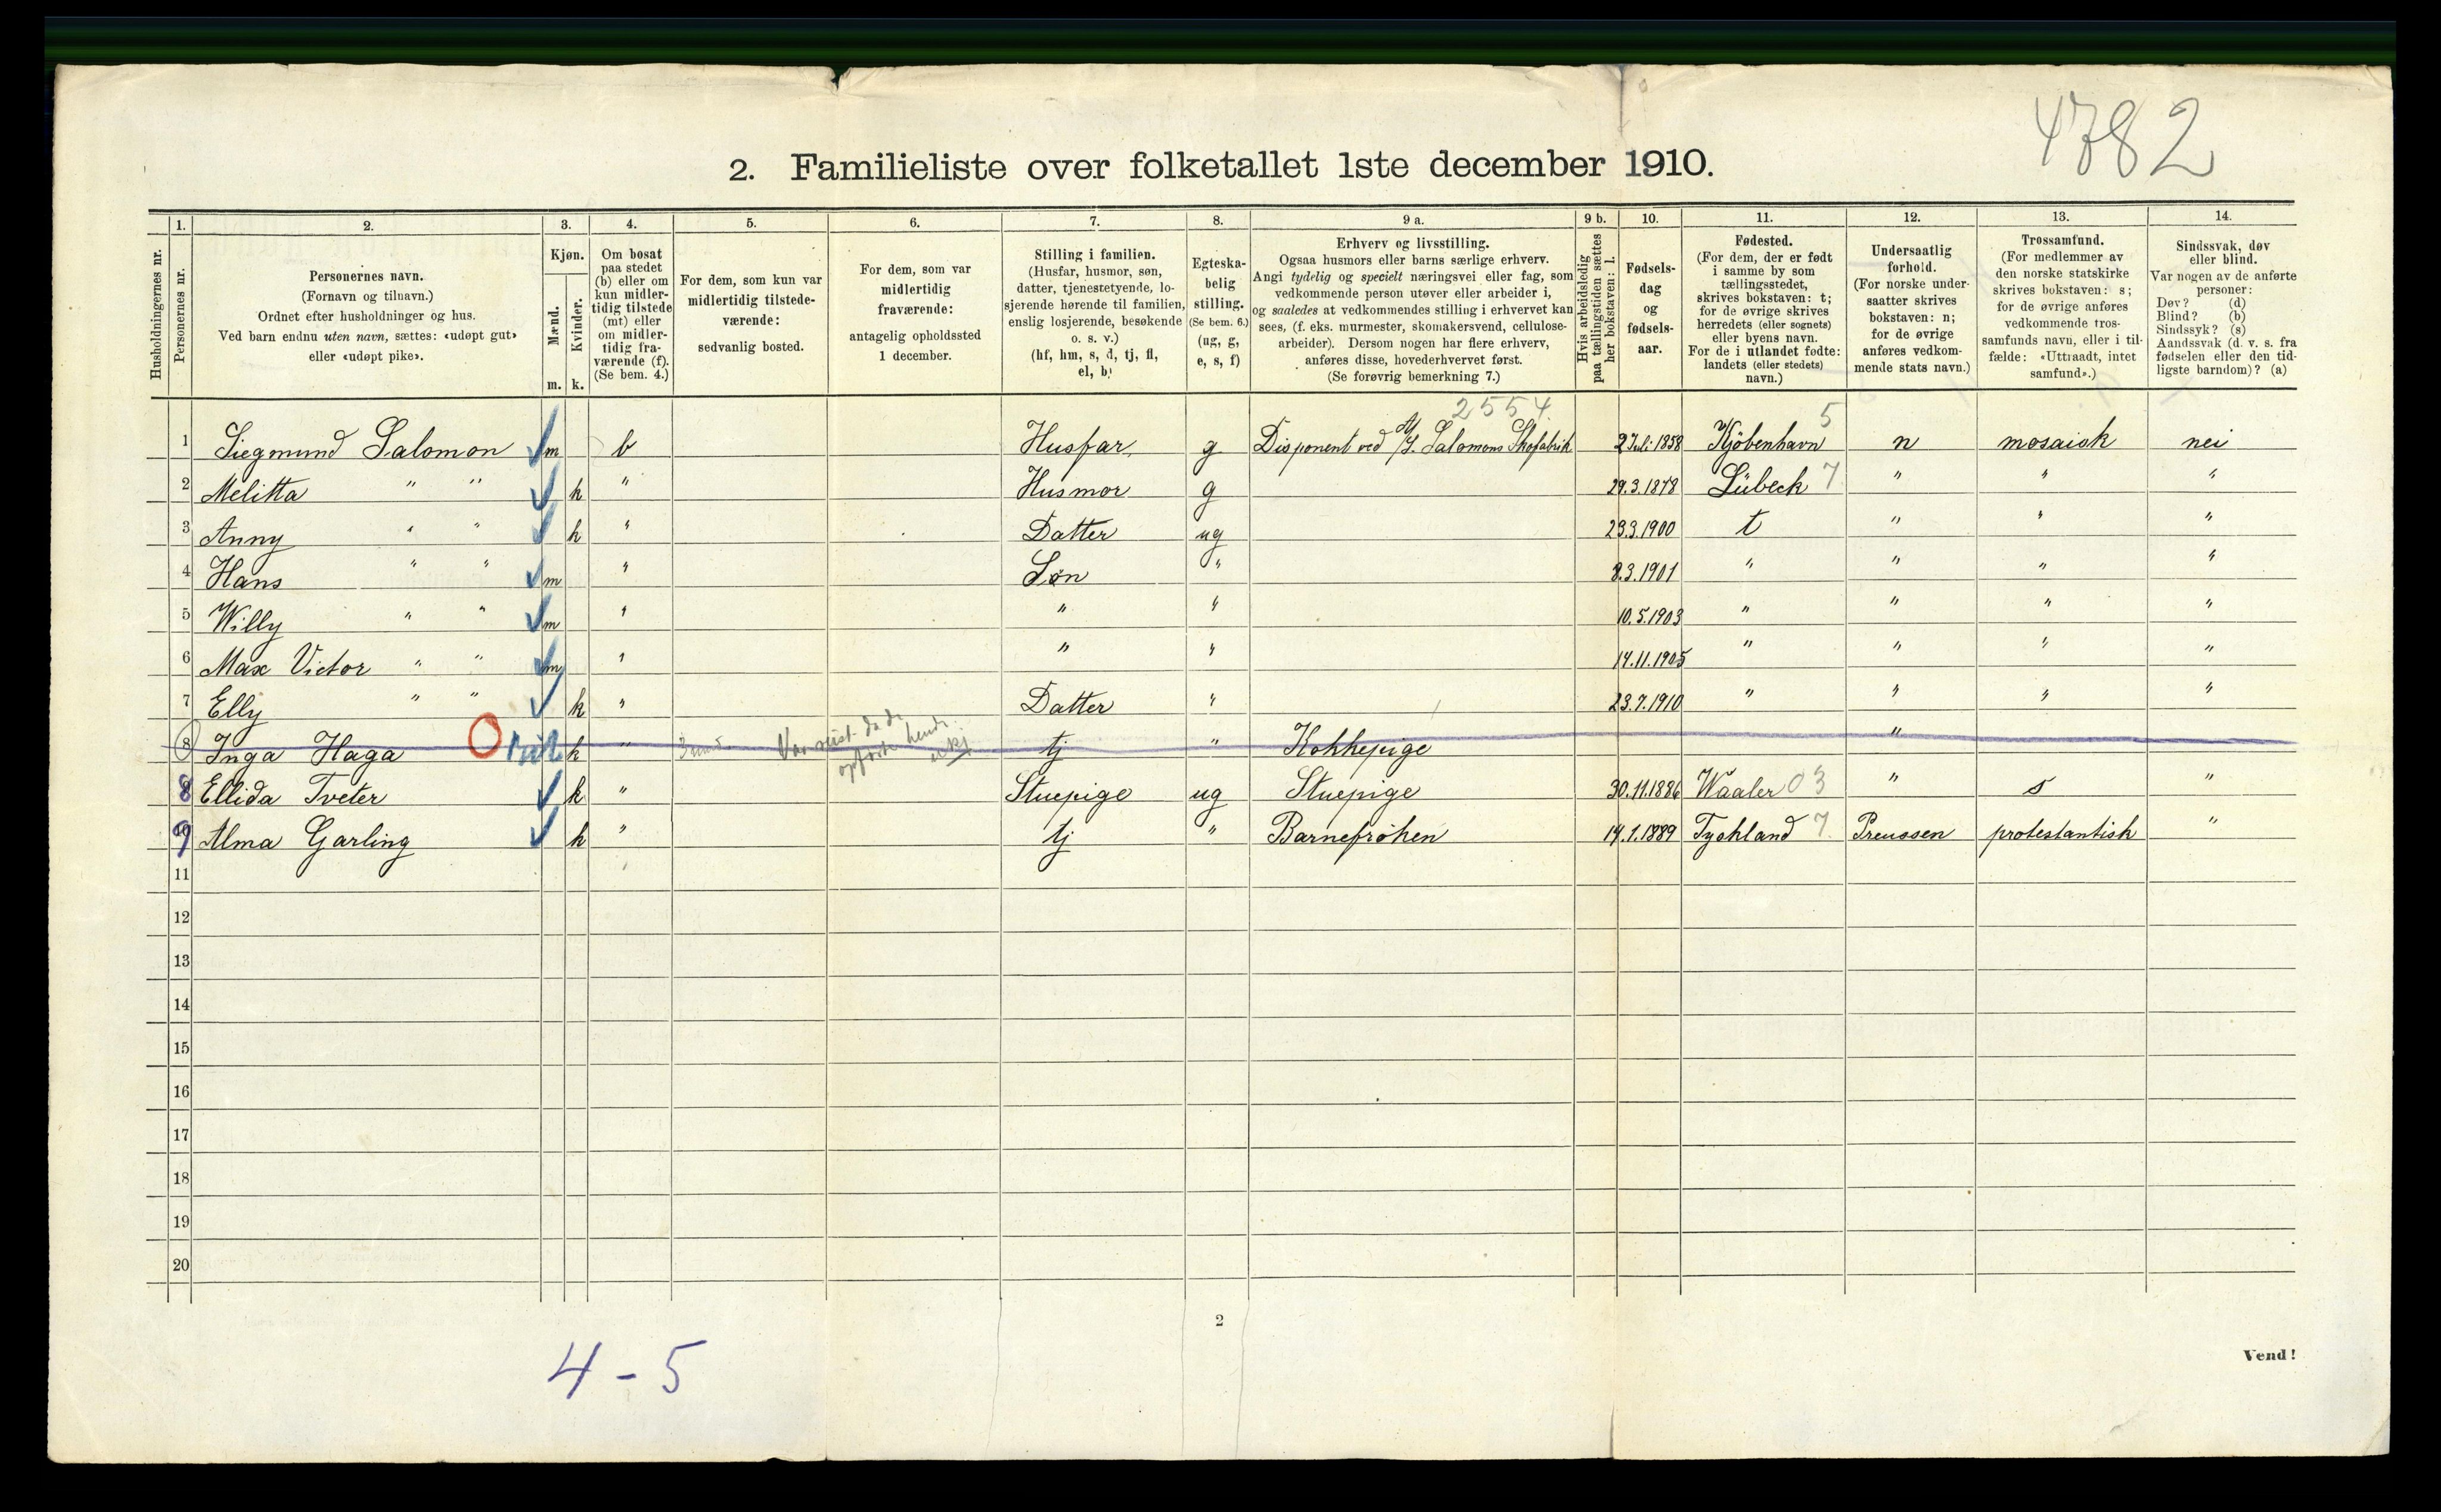 4782
2. Familieliste over folketallet 1ste december 1910.
Husholdningernes nr.
1. Personernes nr.
2. Personernes navn. (Fornavn og tilnavn.) Ordnet efter husholdninger og hus. Ved barn endnu uten navn, sættes: «udøpt gut» eller «udøpt pike».
3. Kjøn. Mænd. m. Kvinder. k.
4. Om bosat paa stedet (b) eller om kun midlertidig tilstede (mt) eller om midlertidig fraværende (f). (Se bem. 4.)
5. For dem, som kun var midlertidig tilstedeværende: sedvanlig bosted.
6. For dem, som var midlertidig fraværende: antagelig opholdssted 1 december.
7. Stilling i familien. (Husfar, husmor, søn, datter, tjenestetyende, losjerende hørende til familien, enslig losjerende, besøkende o. s. v.) (hf, hm, s, d, tj, fl, el, b)
8. Egteskabelig stilling. (Se bem. 6.) (ug, g, e, s, f)
9 a. Erhverv og livsstilling. Ogsaa husmors eller barns særlige erhverv. Angi tydelig og specielt næringsvei eller fag, som vedkommende person utøver eller arbeider i, og saaledes at vedkommendes stilling i erhvervet kan sees, (f. eks. murmester, skomakersvend, cellulosearbeider). Dersom nogen har flere erhverv, anføres disse, hovederhvervet først. (Se forøvrig bemerkning 7.)
9 b. Hvis arbeidsledig paa tællingstiden sættes her bokstaven: l.
10. Fødselsdag og fødselsaar.
11. Fødested. (For dem, der er født i samme by som tællingsstedet, skrives bokstaven: t; for de øvrige skrives herredets (eller sognets) eller byens navn. For de i utlandet fødte: landets (eller stedets) navn.)
12. Undersaatlig forhold. (For norske undersaatter skrives bokstaven: n; for de øvrige anføres vedkommende stats navn.)
13. Trossamfund. (For medlemmer av den norske statskirke skrives bokstaven: s; for de øvrige anføres vedkommende trossamfunds navn, eller i tilfælde: «Uttraadt, intet samfund».)
14. Sindssvak, døv eller blind. Var nogen av de anførte personer: Døv? (d) Blind? (b) Sindssyk? (s) Aandssvak (d. v. s. fra fødselen eller den tidligste barndom)? (a)
2554. 5
1 Siegmund Salomon m b Husfar. g Disponent ved A/S. Salomons Skofabrik 2 Juli 1858 Kjöbenhavn n mosaisk nei
2 Melitta " " k " Husmor g 29.3.1878 Lübeck 7 " " "
3 Anny " " k " Datter ug 23.3.1900 t " " "
4 Hans " " m " Søn " 8.3.1901 " " " "
5 Willy " " m " " " 10.5.1903 " " " "
6 Max Victor " " m " " " 14.11.1905 " " " "
7 Elly " " k " Datter " 23.7.1910 " " " "
8 Inga Haga k " Var reist da de opførte hende tj " Kokkepige "
8 Ellida Tveter k " Stuepige ug Stuepige 30.11.1886 Waaler 03 " s "
9 Alma Garling k " tj " Barnefröken 14.1.1889 Tyskland 7. Preussen protestantisk "
11
12
13
14
15
16
17
18
19
20
2
4 - 5
Vend!